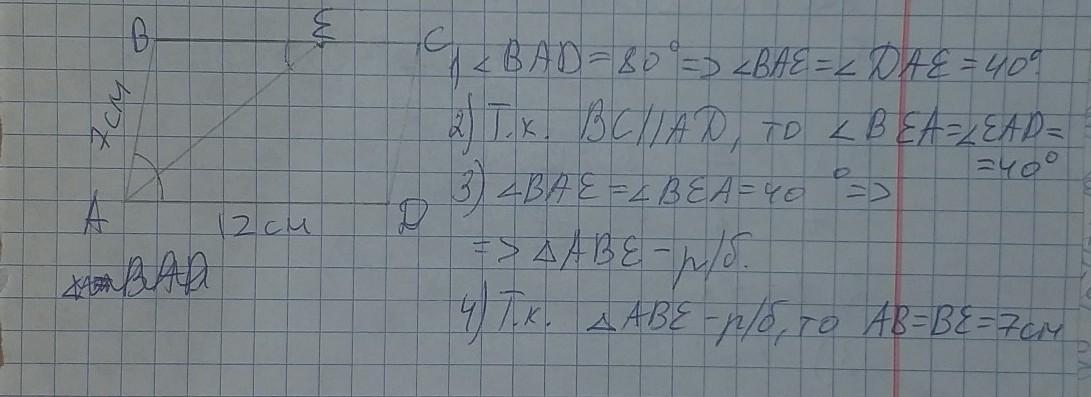 B E C
7см
A 12см D
BAD
1) ∠BAD=80°=>∠BAE=∠DAE=40°.
2) Т.к. BC//AD, то ∠BEA=∠EAD=
=40°
3) ∠BAE=∠BEA=40°=>
=> △ABE-р/б.
4) Т.к. △ABE-р/б, то AB=BE=7см